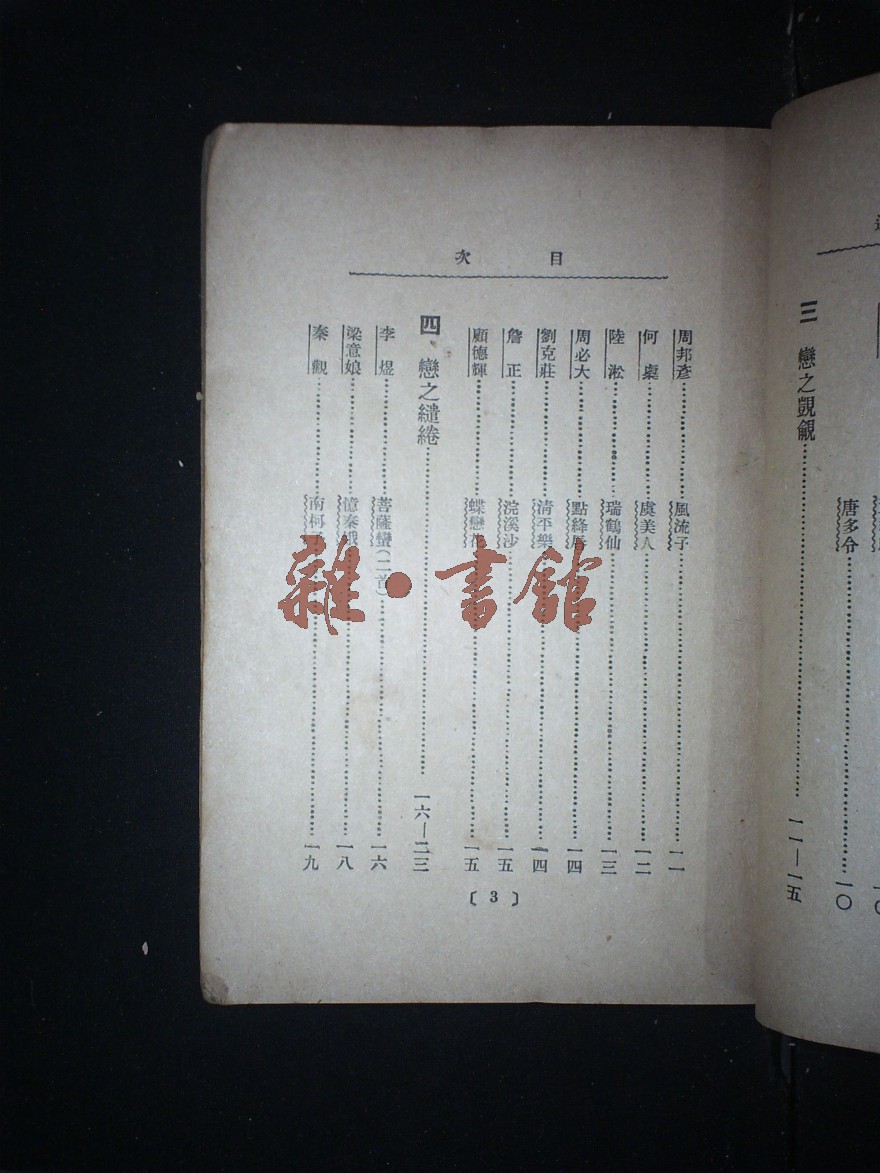 三 戀之覬覦……一一—一五
唐多令……一〇
目次
周邦彥……風流子……一一
何㮚……虞美人……一二
陸淞……瑞鶴仙……一三
周必大……點絳唇……一四
劉克莊……清平樂……一四
詹正……浣溪沙……一五
顧德輝……蝶戀花……一五
四、戀之繾綣……一六—二三
李煜……菩薩蠻(二首)……一六
梁意娘……憶秦娥……一八
秦觀……南柯子……一九
〔3〕
雜·書館